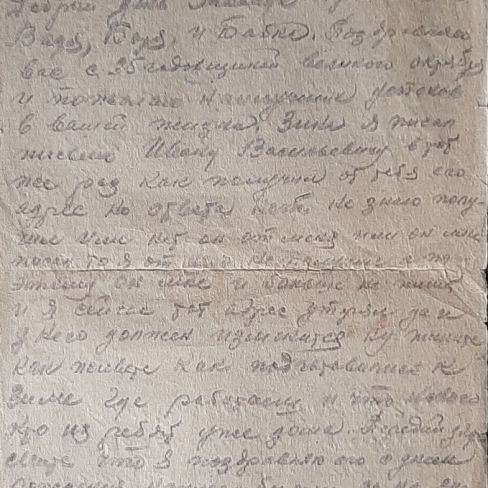 Добрый день
Вадя, Боря, и Бабка. Поздравляю
вас с 25 годовщиной великого октября
и пожелаю наилучших успехов
в вашей жизни, Зина я писал
письмо Ивану Васильевичу в тот
же раз как получил от тебя его
адрес но ответа нет. не знаю полу-
чил или нет он от меня или он мне
писал то я от него не получил а по
этому он мне и больше не пишет
и я сейчас тот адрес утерял да и
у него должен измениться ну пишите
как живете как подготовились к
зиме где работаете и что нового
кто из ребят уже дома
что я поздравляю его с днем